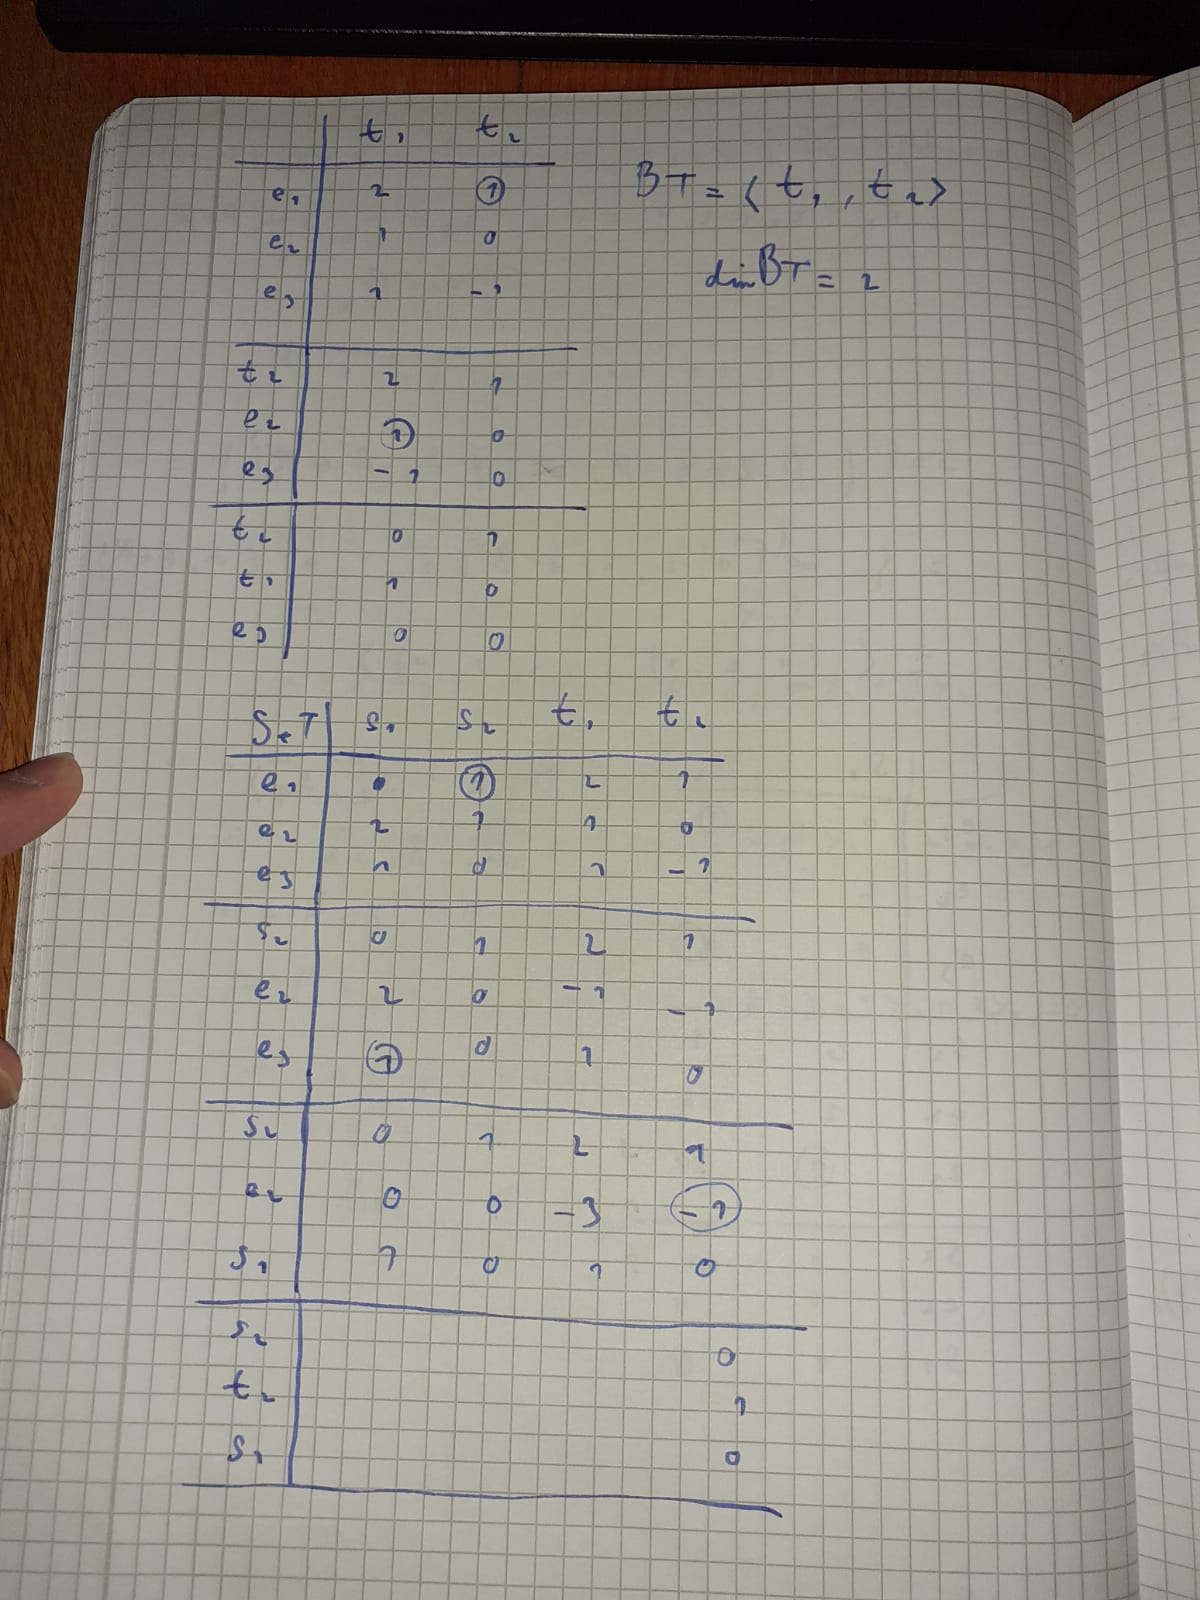 t₁ t₂
e₁ 2 1
BT = ⟨t₁, t₂⟩
e₂ 1 0
dim BT = 2
e₃ 1 -1
t₂ 2 1
e₂ 1 0
e₃ -1 0
t₂ 0 1
t₁ 1 0
e₃ 0 0
S+T s₁ s₂ t₁ t₂
e₁ 0 1 2 1
e₂ 2 1 1 0
e₃ 1 0 1 -1
s₂ 0 1 2 1
e₂ 2 0 -1 -1
e₃ 1 0 1 0
s₂ 0 1 2 1
e₂ 0 0 -3 -1
s₁ 1 0 1 0
s₂ 0
t₂ 1
s₁ 0